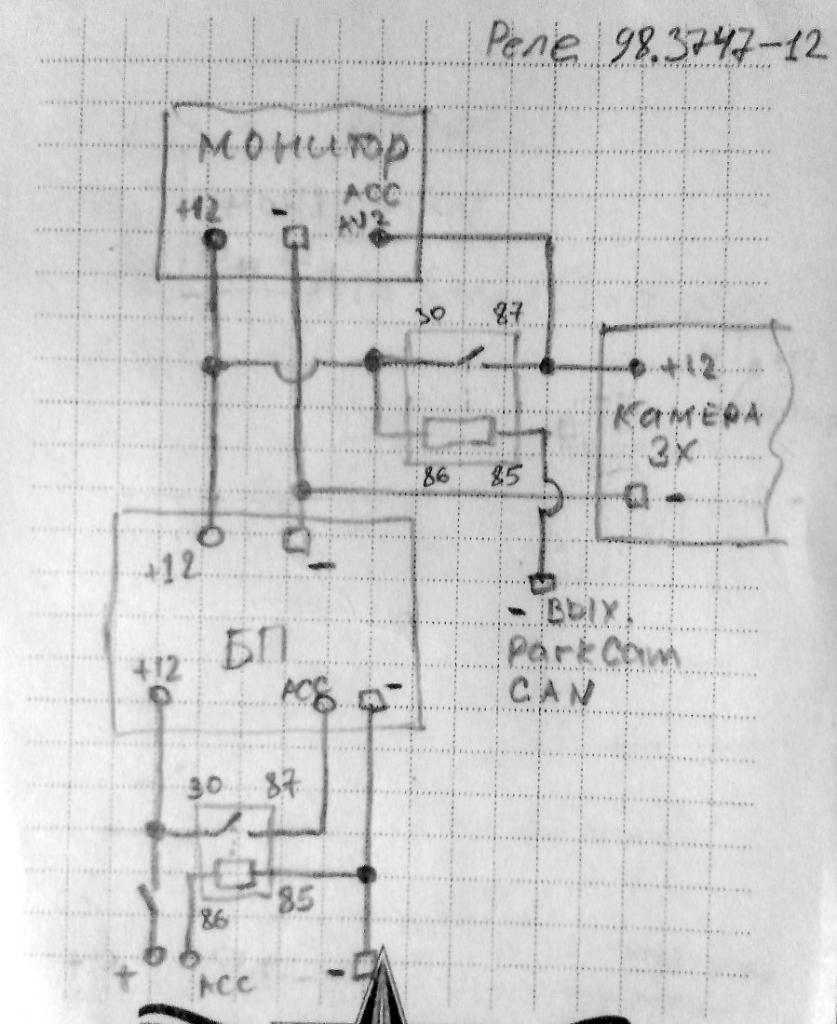 Реле 98.3747-12
МОНИТОР
ACC
+12 - AV2
30 87
+12
КАМЕРА
ЗХ
-
86 85
+12 -
- ВЫХ.
ParkCam
CAN
БП
+12 ACC -
30 87
86 85
+ ACC -